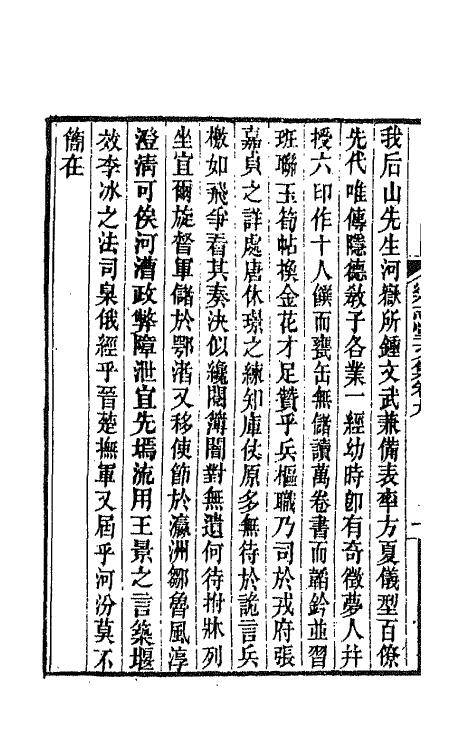 我后山先生河嶽所鍾文武兼備表率方夏儀型百僚
先代唯傳隱德敎子各業一經幼時卽有奇徵夢人幷
授六印作十人饌而甕缶無儲讀萬卷書而韜鈐並習
班聯玉筍帖換金花才足贊乎兵樞職乃司於戎府張
嘉貞之詳處唐休璟之練知庫仗原多無待於詭言兵
檄如飛爭看其奏決似纔閱簿闇對無遺何待拊牀列
坐宜爾旋督軍儲於鄂渚又移使節於瀛洲鄒魯風淳
澄淸可俟河漕政弊障泄宜先墕流用王景之言築堰
效李冰之法司臬俄經乎晉楚撫軍又屆乎河汾莫不
簡在